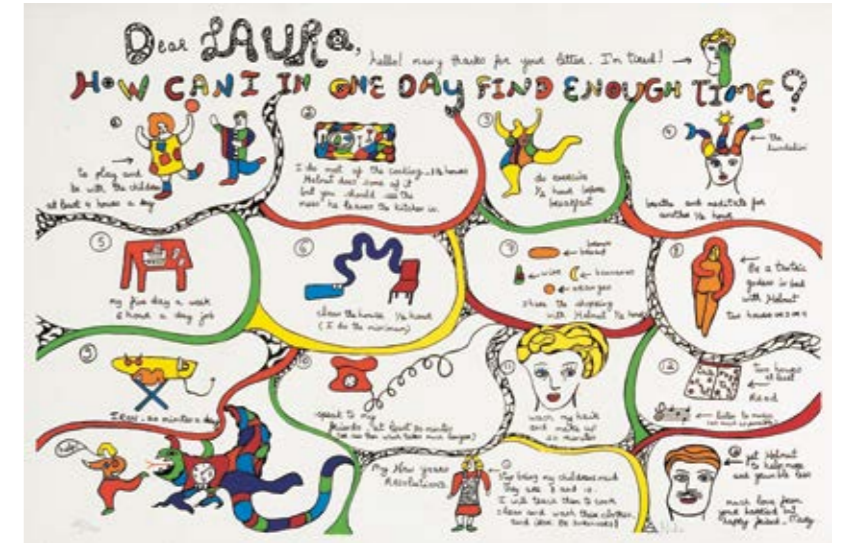 Dear LAURA, hello! many thanks for your letter. I'm tired!
HOW CAN I IN ONE DAY FIND ENOUGH TIME?
①
to play and
be with the children
at least 4 hours a day
②
I do most of the cooking. 1½ hours
Helmut does some of it
but you should see the
mess he leaves the kitchen in.
③
do exercise
½ hour before
breakfast
④
the
kundalini
breathe and meditate for
another ½ hour
⑤
my five day a week
6 hour a day job
⑥
clean the house ½ hour
(I do the minimum)
⑦
brown
bread
wine
bananas
oranges
share the shopping
with Helmut ½ hour
⑧
Be a tantric
goddess in bed
with Helmut
two hours
⑨
Iron. minutes a day
help!
⑩
speak to my
friends at least minutes
⑪
wash my hair
and make up
20 minutes
⑫
two hours
at least
Read
listen to music
My New Years
Resolutions.
①
Stop being my childrens maid
They are 8 and 10.
I will teach them to cook
clean and wash their clothes.
②
get Helmut
to help more
and grumble less
much love from
your harried but
happy friend. Mary